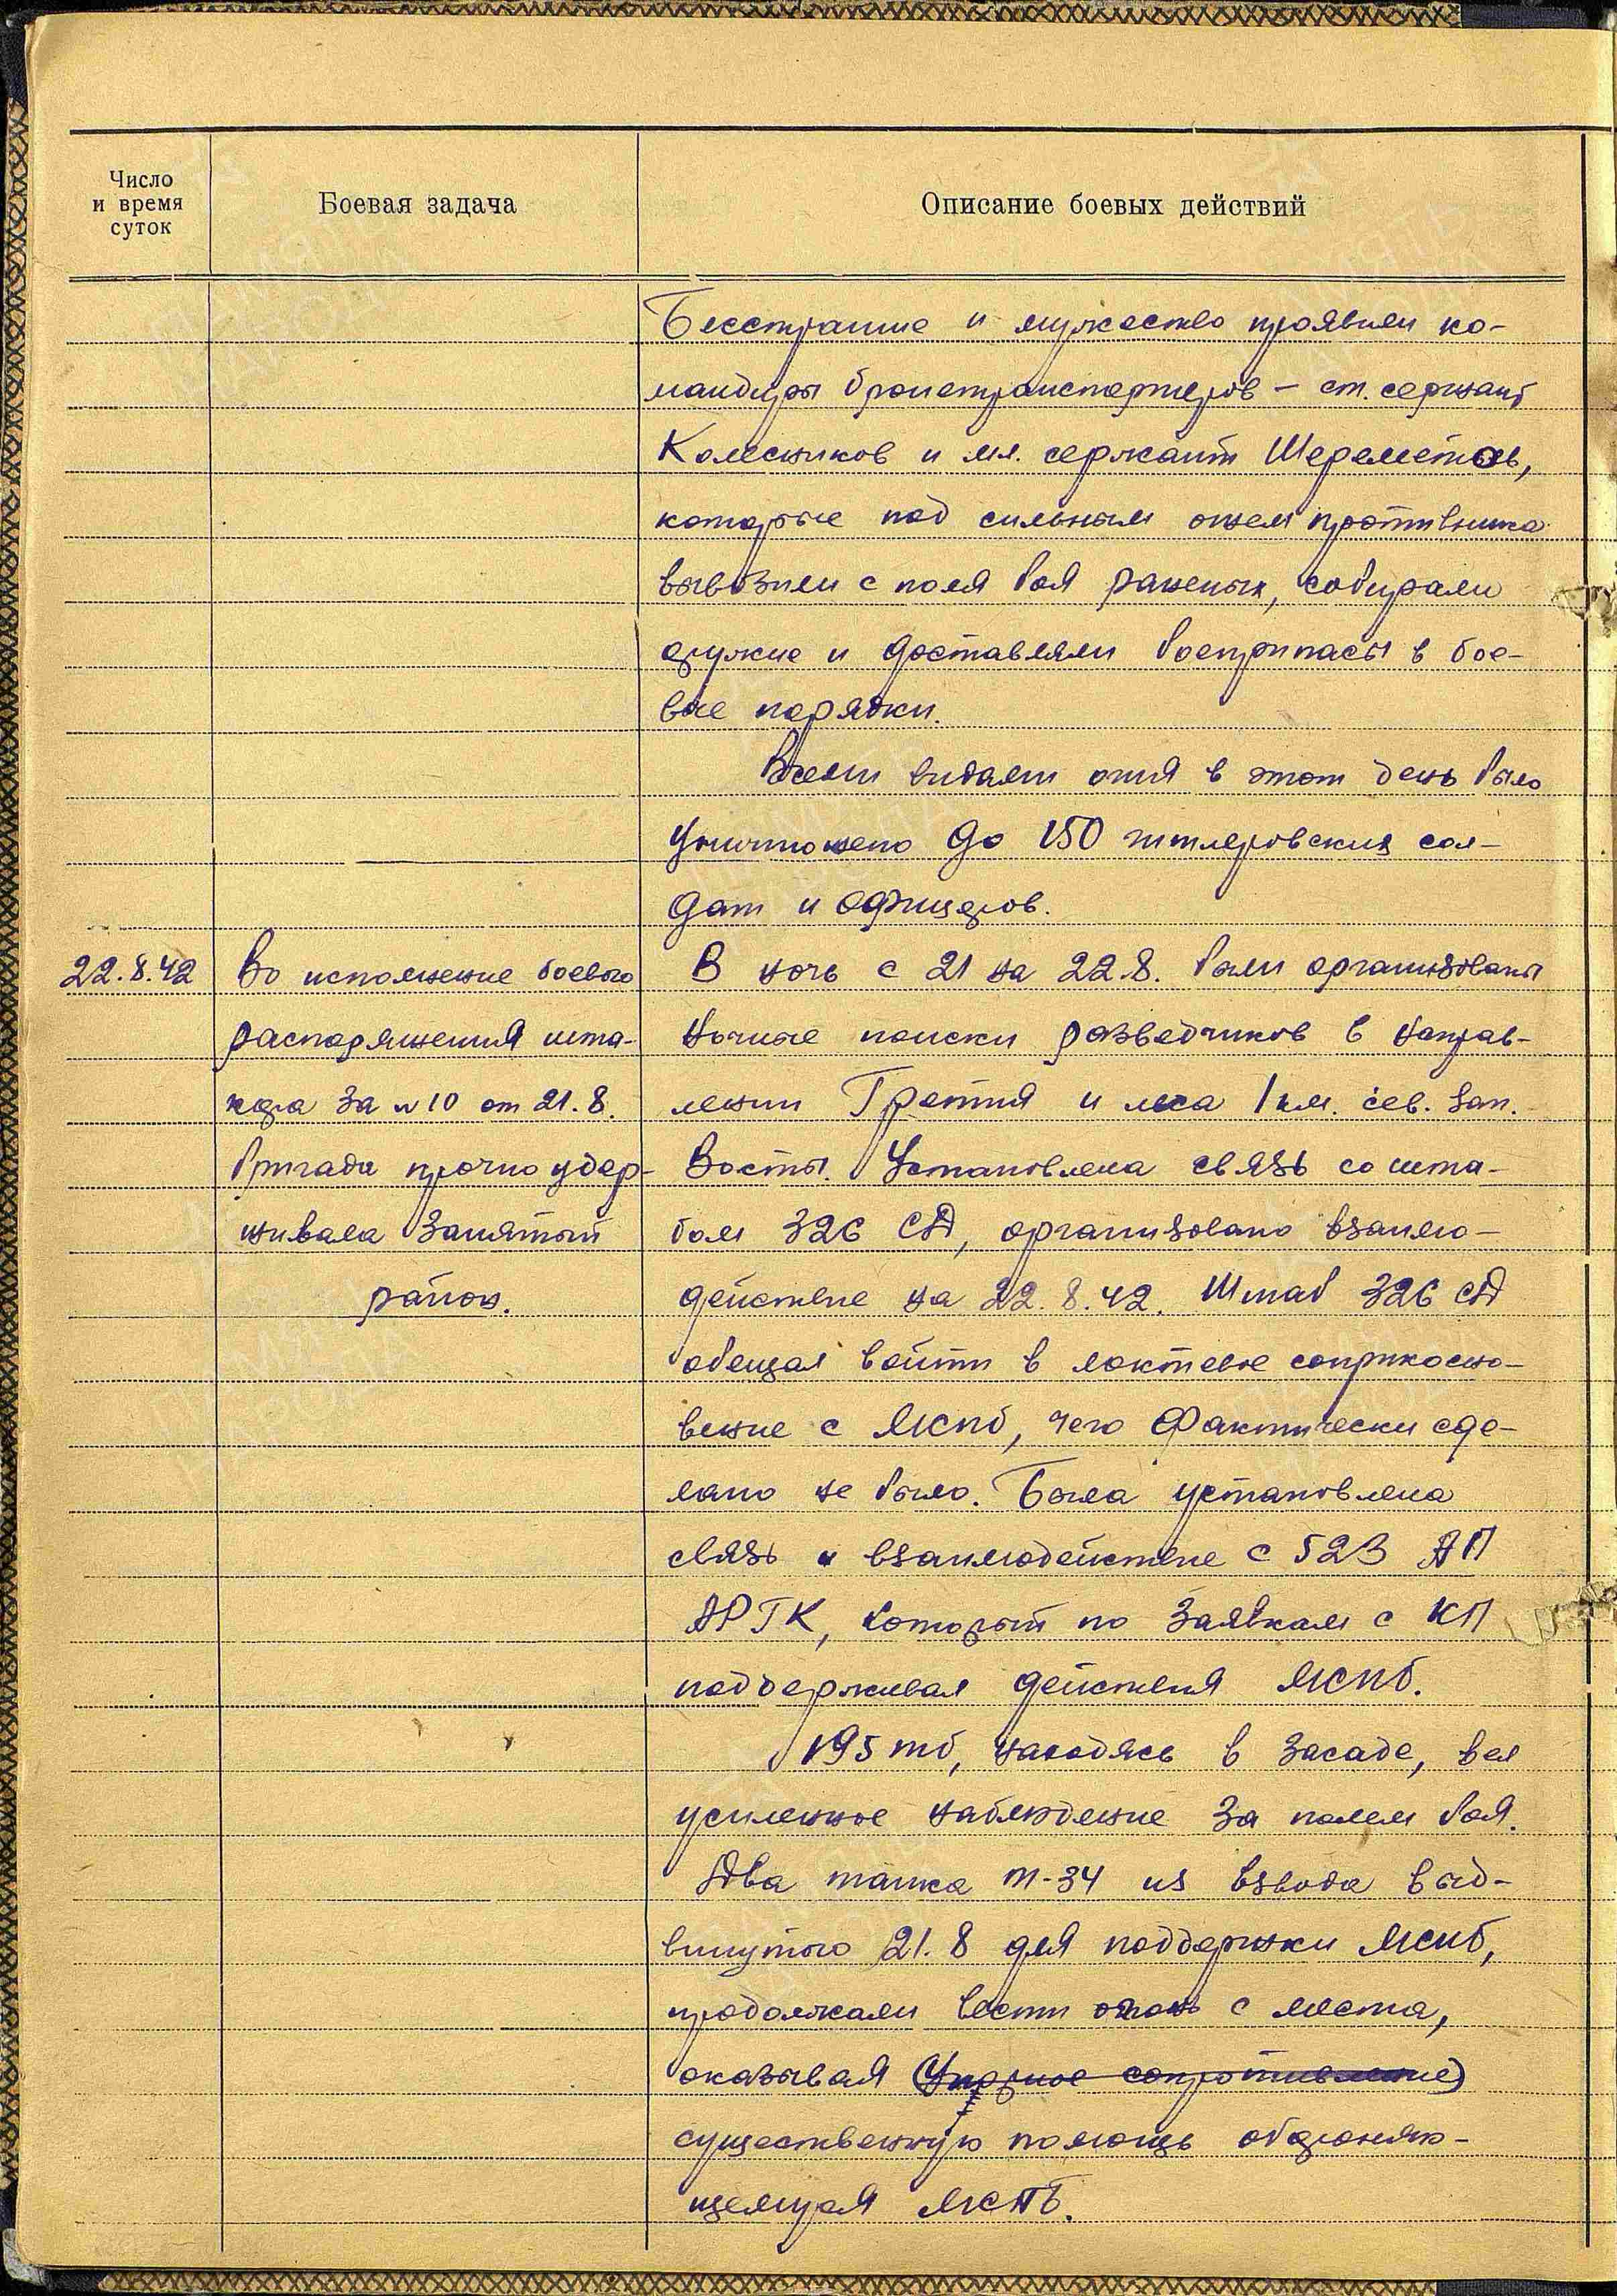 Число
и время
суток
Боевая задача
Описание боевых действий
Бесстрашие и мужество проявили ко-
мандиры бронетранспортеров – ст. сержант
Колесников и мл. сержант Шереметов,
которые под сильным огнем противника
вывозили с поля боя раненых, собирали
оружие и доставляли боеприпасы в бое-
вые порядки.
Всеми видами огня в этот день было
уничтожено до 150 гитлеровских сол-
дат и офицеров.
22.8.42
Во исполнение боевого
распоряжения шта-
кора за №10 от 21.8.
бригада прочно удер-
живала занятый
район.
В ночь с 21 на 22.8. были организованы
ночные поиски разведчиков в направ-
лении Гретня и леса 1 км. сев. зап.
Восты. Установлена связь со шта-
бом 326 СД, организовано взаимо-
действие на 22.8.42. Штаб 326 СД
обещал войти в локтевое соприкосно-
вение с МСПБ, чего фактически сде-
лано не было. Была установлена
связь и взаимодействие с 523 АП
АРГК, который по заявкам с КП
поддерживал действия МСПБ.
195 тб, находясь в засаде, вел
усиленное наблюдение за полем боя.
Два танка Т-34 из взвода выд-
винутого 21.8 для поддержки МСПБ,
продолжали вести огонь с места,
оказывая (упорное сопротивление)
существенную помощь обороняю-
щемуся МСПБ.